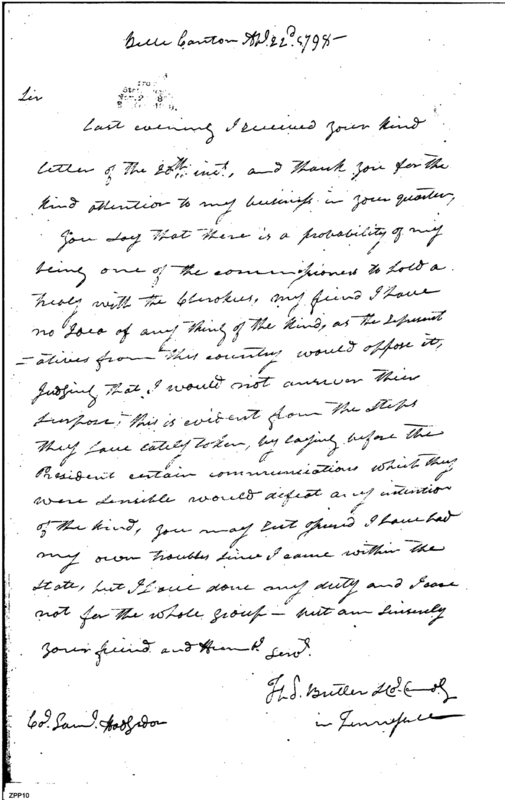 Belle Canton Apl. 22d. 1798—
Sir
Last evening I received your kind
letter of the 20th inst, and thank you for the
kind attention to my business in your quarter,
You say that there is a probability of my
being one of the commissioners to hold a
treaty with the Cherokees, my friend I have
no Idea of any thing of the kind, as the represent
=atives from this country would oppose it,
Judging that I would not answer their
purpose, this is evident from the steps
they have lately taken, by laying before the
President certain communications which they
were sensible would defeat any intention
of the kind, you may rest I have had
my own troubles since I came within the
State, but I have done my duty and I care
not for the whole group— but am sincerely
your friend and Humbl.
Servt.
Ths. Butler Lt. Col. Comdg
in Tennessee
Col. Saml. Hodgdon
ZPP10